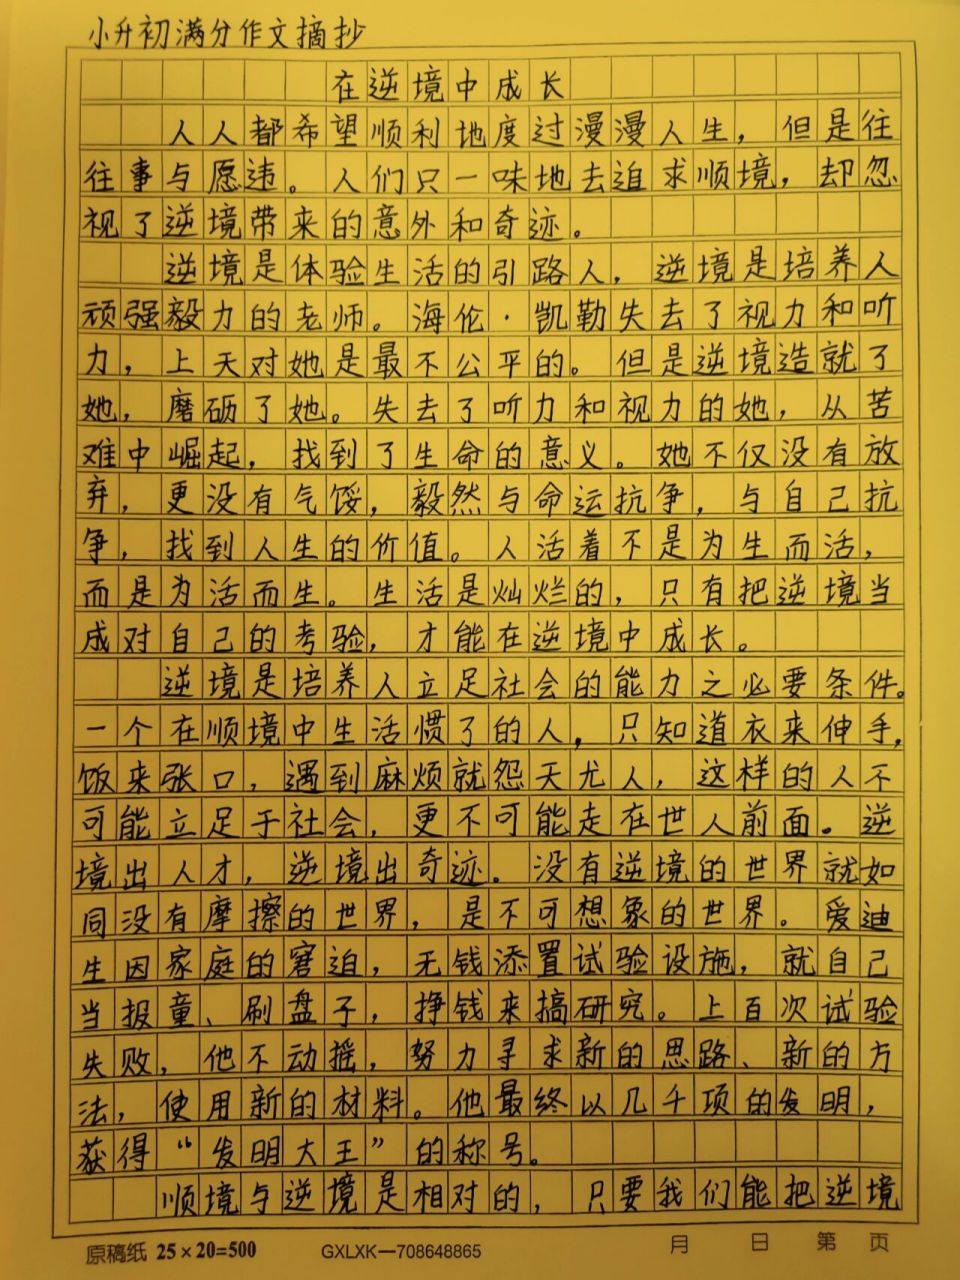 小升初满分作文摘抄
在逆境中成长
人人都希望顺利地度过漫漫人生，但是往
往事与愿违。人们只一味地去追求顺境，却忽
视了逆境带来的意外和奇迹。
逆境是体验生活的引路人，逆境是培养人
顽强毅力的老师。海伦·凯勒失去了视力和听
力，上天对她是最不公平的。但是逆境造就了
她，磨砺了她。失去了听力和视力的她，从苦
难中崛起，找到了生命的意义。她不仅没有放
弃，更没有气馁，毅然与命运抗争，与自己抗
争，找到人生的价值。人活着不是为生而活，
而是为活而生。生活是灿烂的，只有把逆境当
成对自己的考验，才能在逆境中成长。
逆境是培养人立足社会的能力之必要条件。
一个在顺境中生活惯了的人，只知道衣来伸手，
饭来张口，遇到麻烦就怨天尤人，这样的人不
可能立足于社会，更不可能走在世人前面。逆
境出人才，逆境出奇迹。没有逆境的世界就如
同没有摩擦的世界，是不可想象的世界。爱迪
生因家庭的窘迫，无钱添置试验设施，就自己
当报童、刷盘子，挣钱来搞研究。上百次试验
失败，他不动摇，努力寻求新的思路、新的方
法，使用新的材料。他最终以几千项的发明，
获得“发明大王”的称号。
顺境与逆境是相对的，只要我们能把逆境
原稿纸 25×20=500 GXLXK—708648865 月 日 第 页